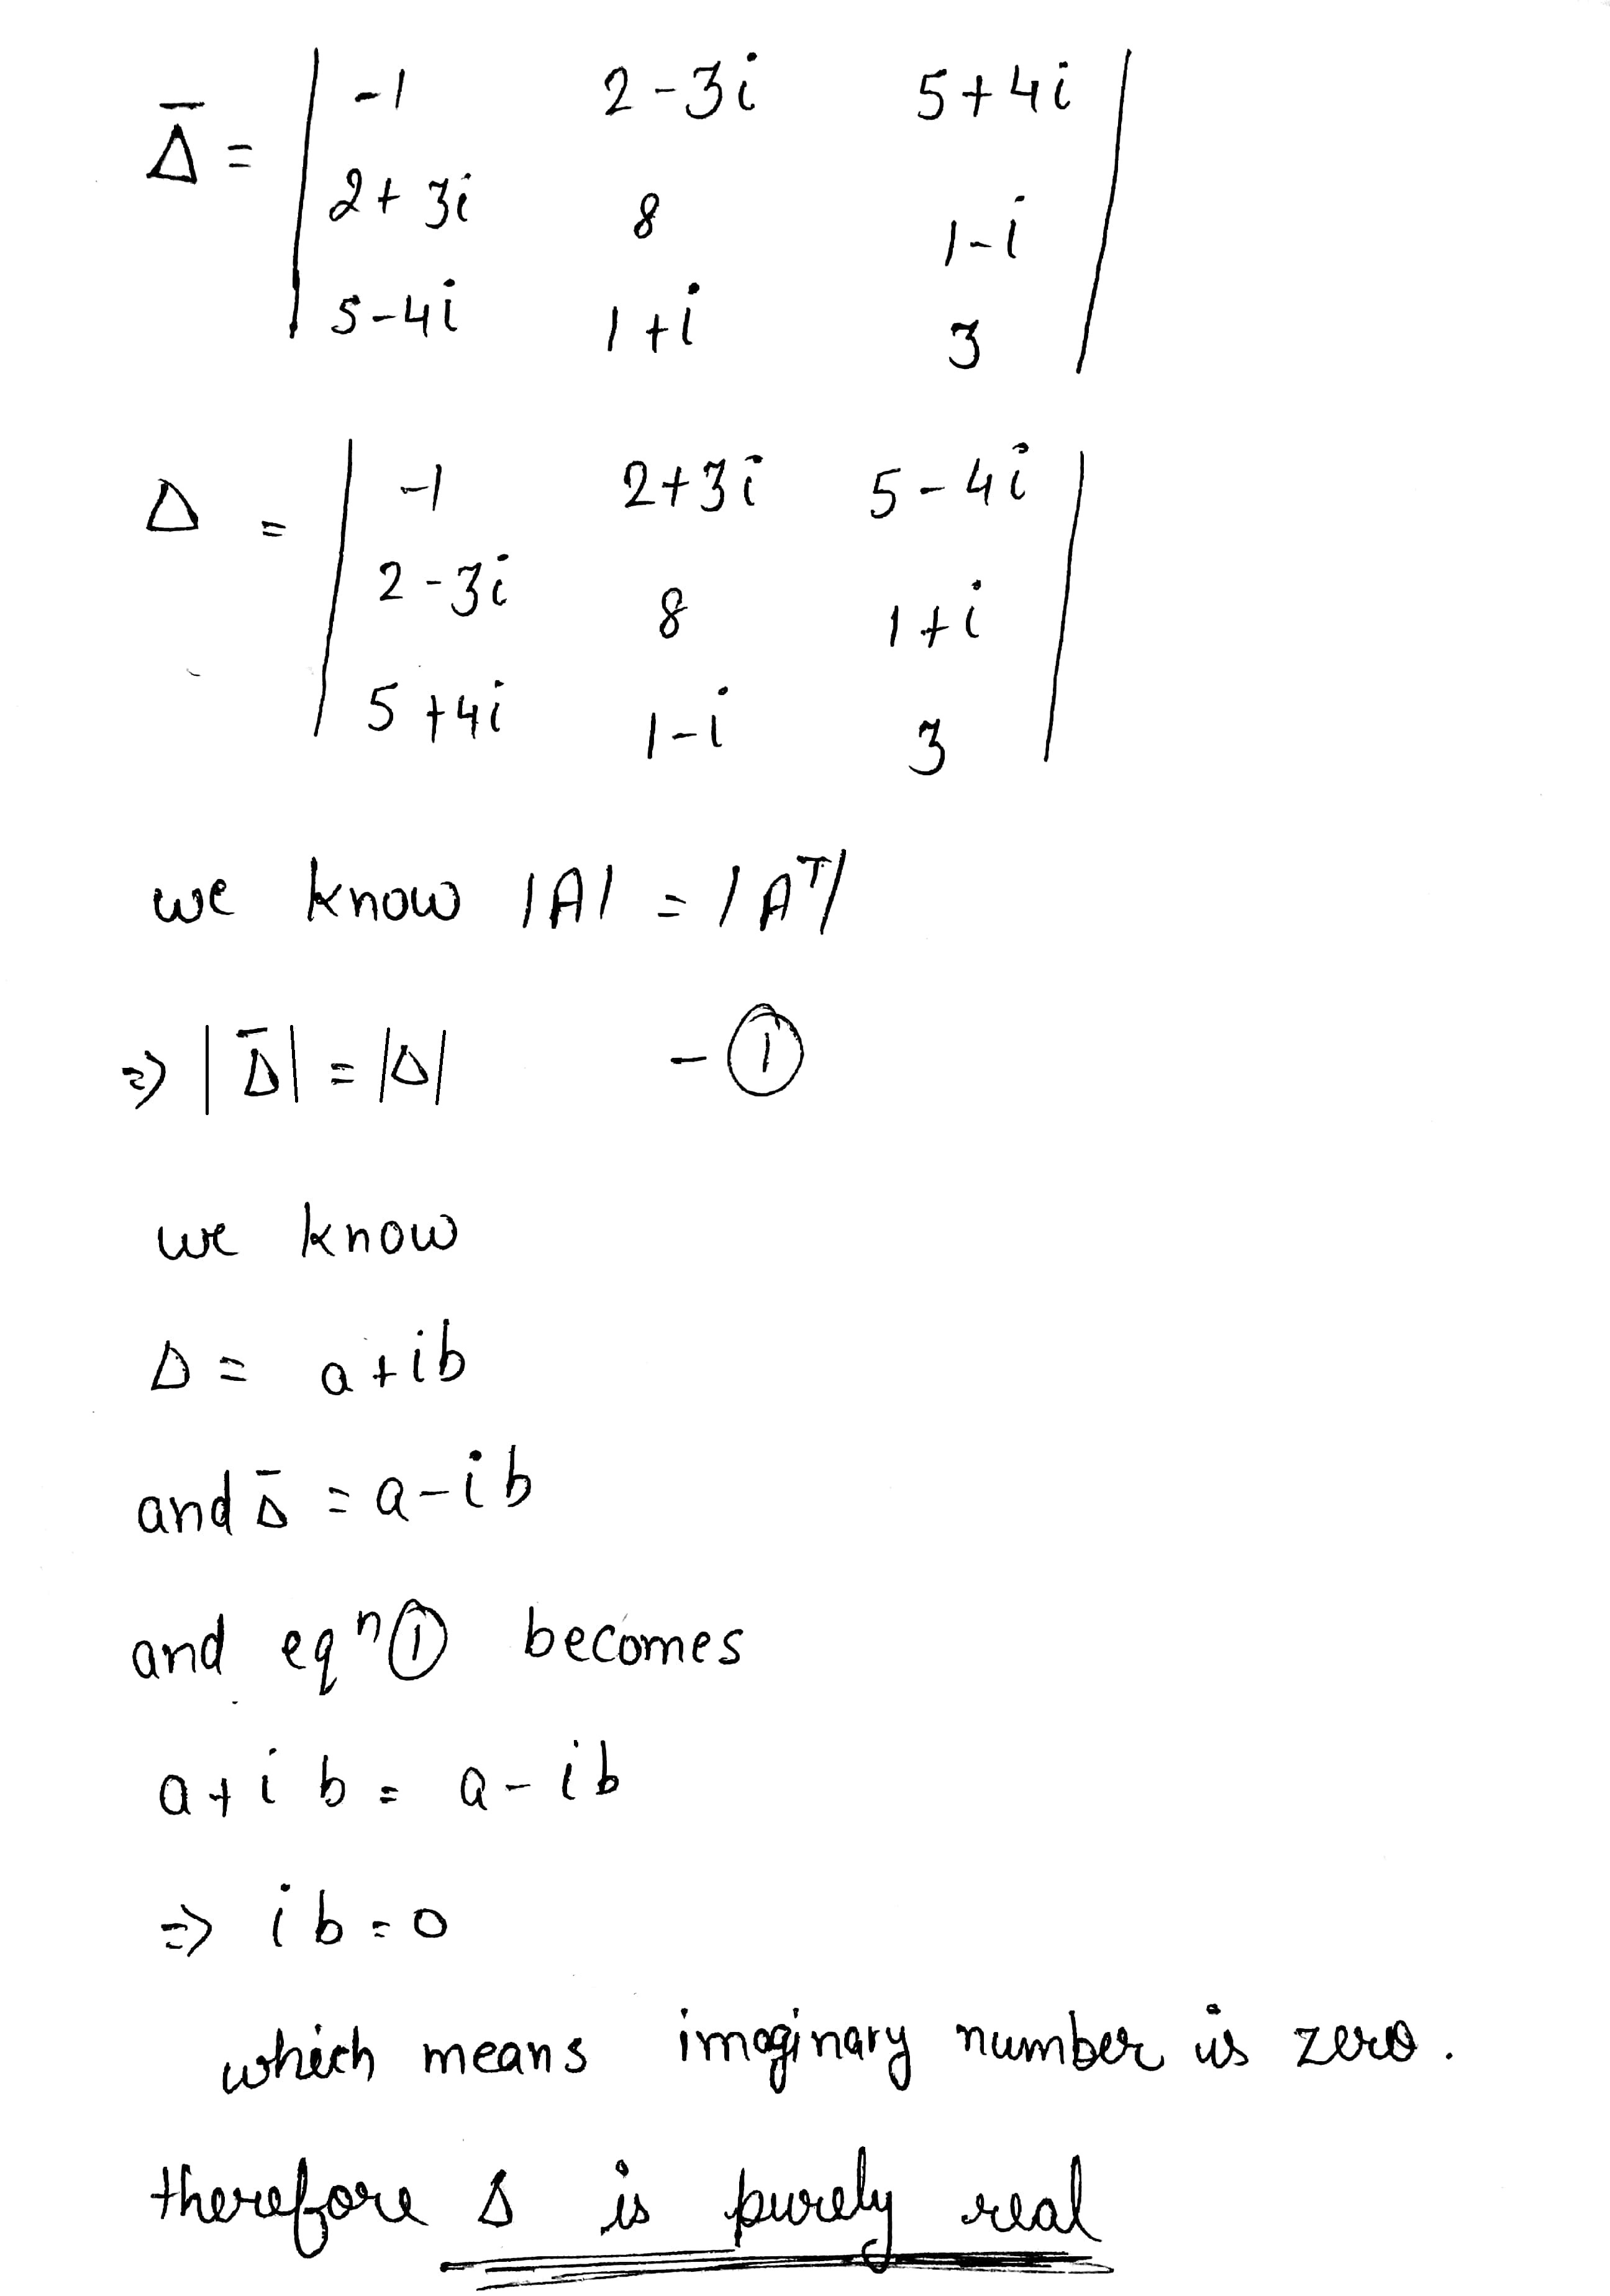 Δ̄ = | -1 2-3i 5+4i |
| 2+3i 8 1-i |
| 5-4i 1+i 3 |
Δ = | -1 2+3i 5-4i |
| 2-3i 8 1+i |
| 5+4i 1-i 3 |
we know |A| = |Aᵀ|
=> |Δ̄| = |Δ| - ①
we know
Δ = a+ib
and Δ̄ = a-ib
and eqⁿ ① becomes
a+ib = a-ib
=> ib=0
which means imaginary number is zero.
therefore Δ is purely real